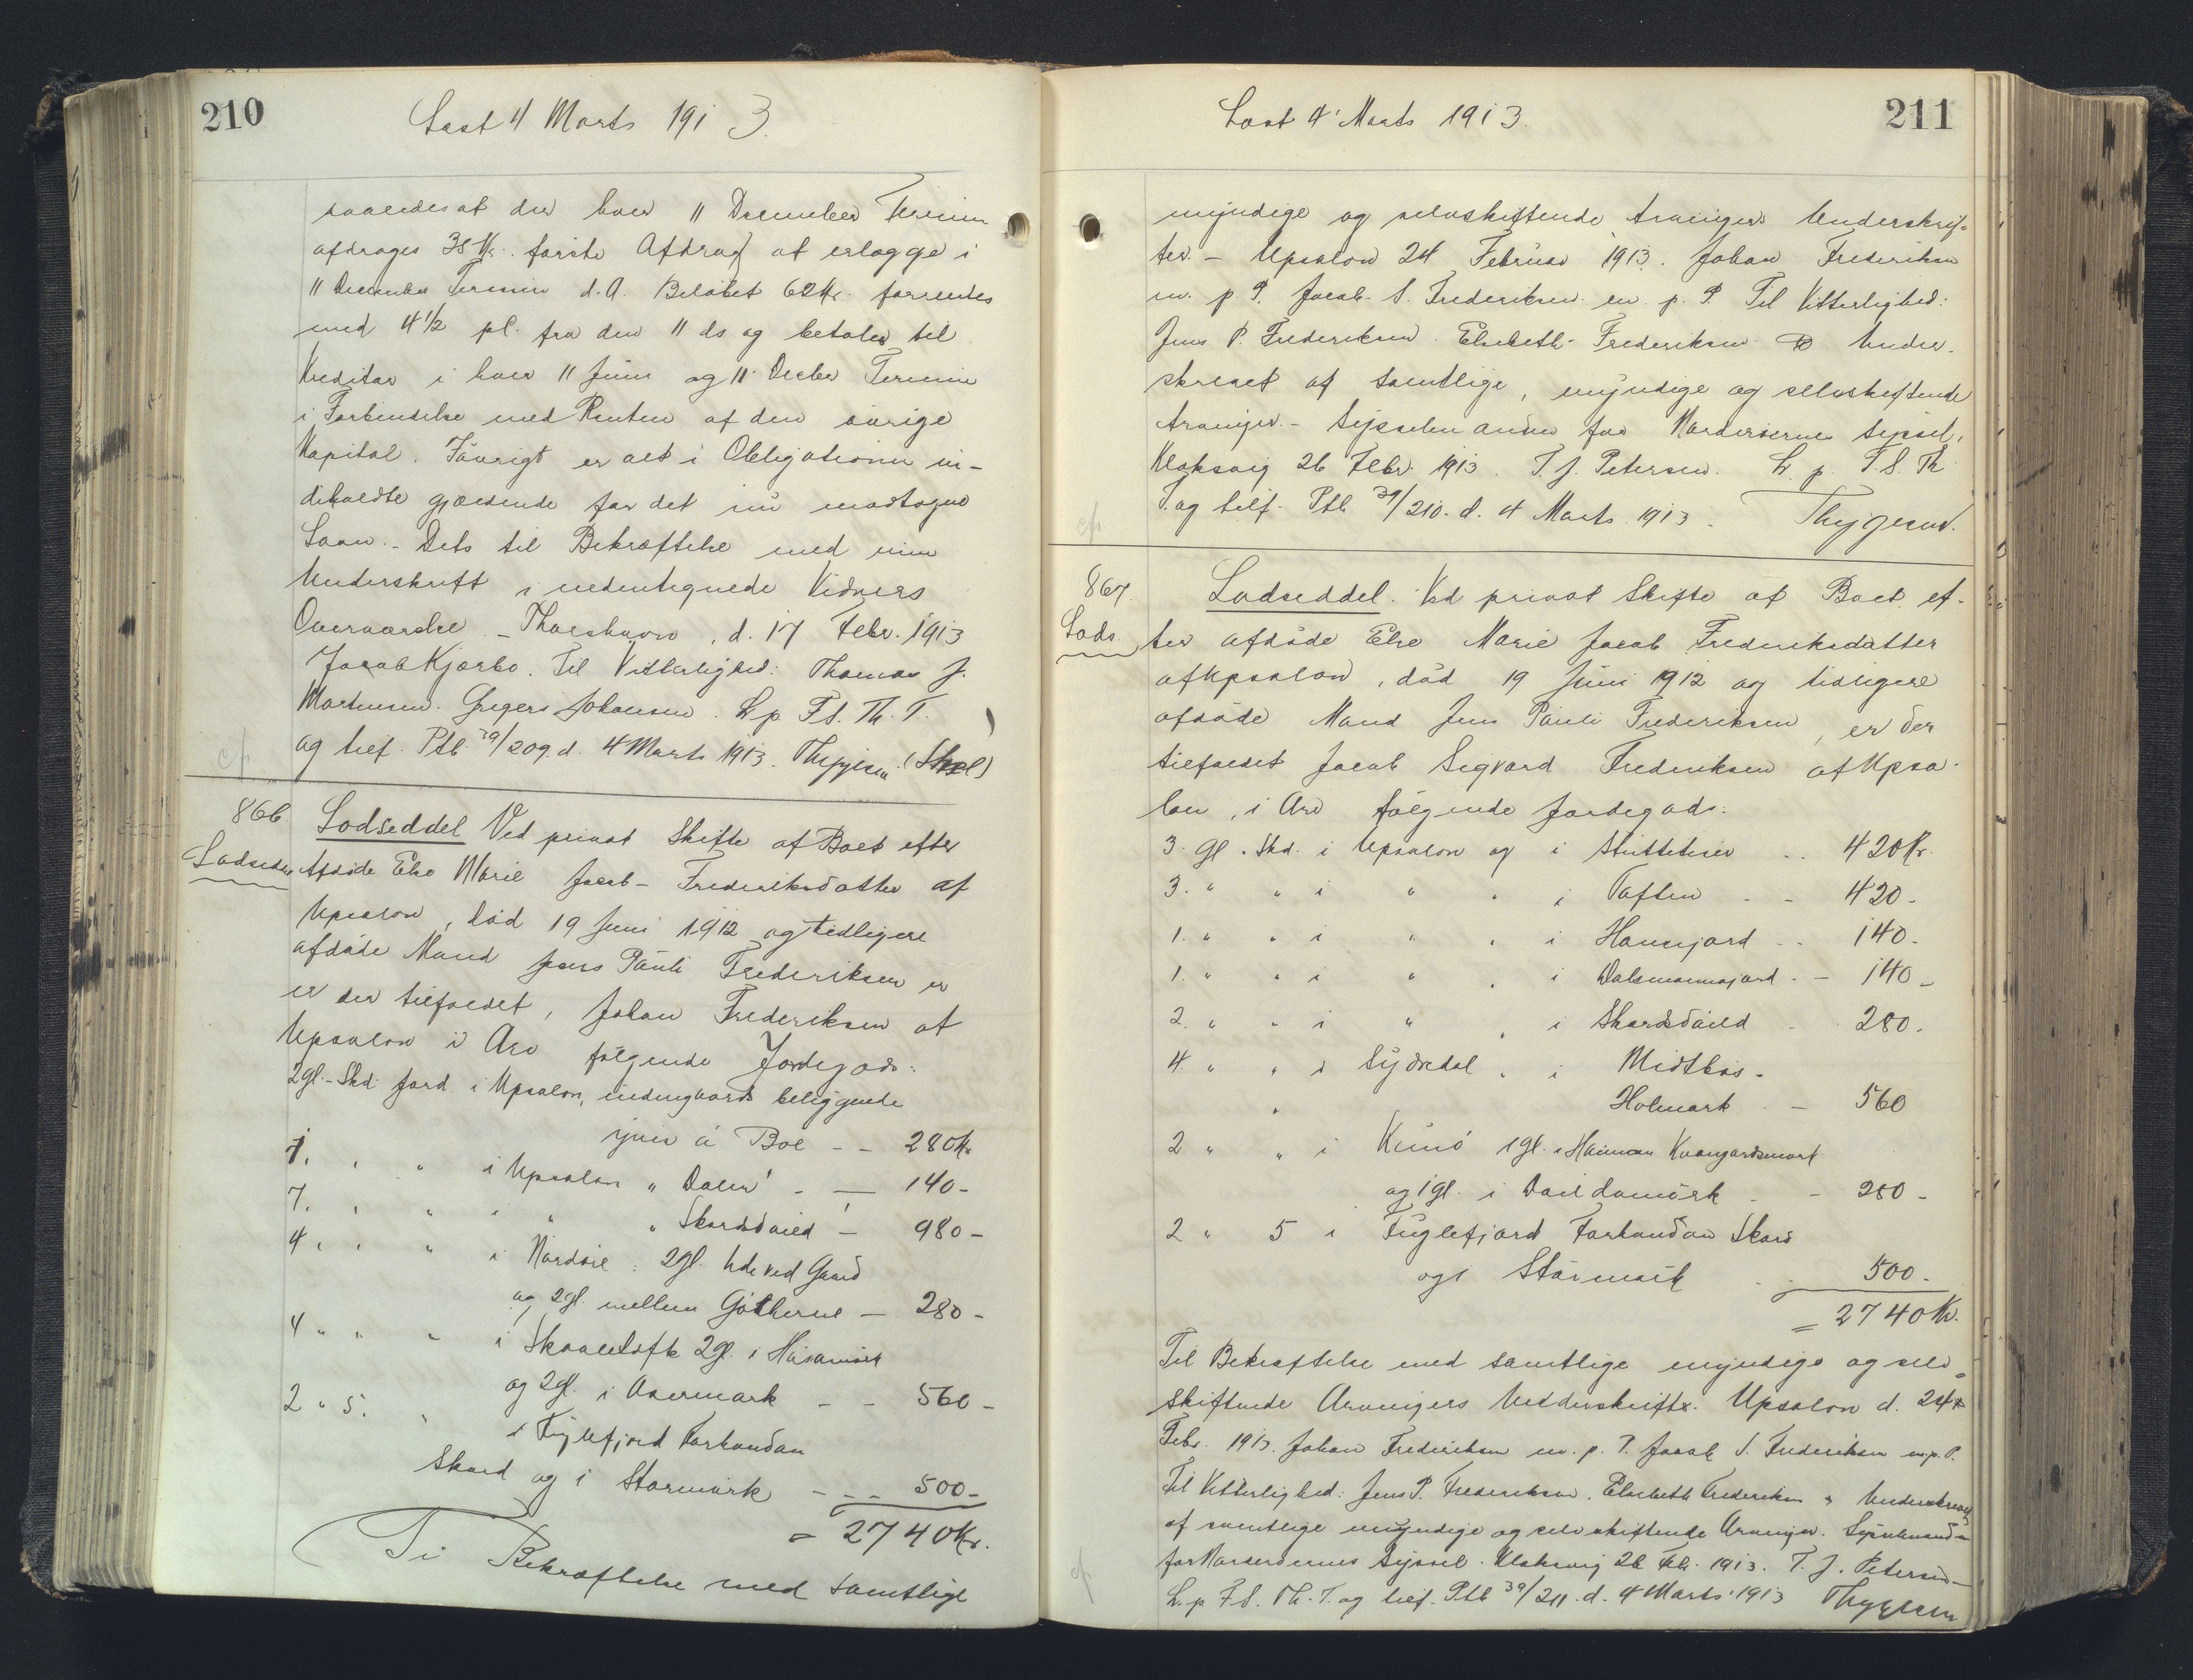 210
Læst 4 Marts 1913.
saaledes at der hver 11 December Termin
afdrages 38 Kr. første Afdrag at erlægge i
11 December Termin d. A. Beløbet 62 Kr. forrentes
med 4 1/2 pC. fra den 11 ds og betales til
Kreditor i hver 11 Juni og 11 Decbr Termin
i Forbindelse med Renten af den øvrige
Kapital. Iøvrigt er alt i Obligationen in-
deholdte gjældende for det nu modtagne
Laan. - Dets til Bekræftelse med min
Underskrift i nedentegnede Vidners
Overværelse. - Thorshavn, d. 17 Febr. 1913
Jacob Kjærbo. Til Vitterlighed: Thomas J.
Mortensen. Gregers Johansen. L. p. F. S. Th. T.
og tilf. Ptb. 39/209. d. 4 Marts 1913. Thygesen
cf.
866.
Lodseddel Ved privat Skifte af Boet efter
Afdøde Else Marie Jacob-Frederiksdatter af
Upsalon, død 19 Juni 1912 og tidligere
afdøde Mand Jens Pauli Frederiksen er
er der tilfaldet, Johan Frederiksen af
Upsalon i Arv følgende Jordegods:
2 gl. - Skd. Jord i Upsalon, indengaards beliggende
yvir á Bø - - 280 Kr.
1. " " i Upsalon " Dalen - - 140 -
7. " " i " " Skorddaild - 980 -
4. " " i Nordøre: 2 gl. Ude ved Gaard
og 2 gl. mellem Gøtherne - 280 -
4 " " " i Skaaletofte 2 gl. i Húsamørk
og 2 gl. i Ovarmark - - 560 -
2 " 5. " i Fuglefjord Forhandan
Skard og i Stórmørk - - - 500 -
= 2740 Kr.
Ti Bekræftelse med samtlige
Læst 4 Marts 1913.
211
myndige og selvskiftende Arvingers Underskrif-
ter. - Upsalon 24 Februar 1913. Johan Frederiksen
m. p. P. Jacob S. Frederiksen m. p. P. Til Vitterlighed:
Jens P. Frederiksen Elsebeth Frederiksen Under-
skrevet af samtlige, myndige og selvskiftende
Arvinger. - Sysselmanden for Norderøernes Syssel,
Klaksvig 26 Febr. 1913. T. J. Petersen. L. p. F. S. Th.
T. og tilf. Ptb 39/210. d. 4 Marts 1913. Thygesen.
cf.
867.
Lods.
Lodseddel. Ved privat Skifte af Boet ef-
ter afdøde Else Marie Jacob Frederiksdatter
af Upsalon, død 19 Juni 1912 og tidligere
afdøde Mand Jens Pauli Frederiksen, er der
tilfaldet Jacob Sigvard Frederiksen af Upsa-
lon, i Arv følgende Jordegods:
3. gl. Skd. i Upsalon og i - - 420 Kr.
3. " " i " " i Toften - - 420 -
1. " " i " " i Hansajord - - 140 -
1. " " i " " i Dalsmannajord - - 140 -
2. " " i " " i Skorddaild - 280 -
4 " " i Sydredal " i Midtbøs -
" Hólmørk - - 560
2 " " i Kunø 1 gl. i
og 1 gl. i - - 280 -
2 " 5 i Fuglefjord Forhandan Skard
og i Stórmørk - - 500 -
= 2740 Kr.
Til Bekræftelse med samtlige myndige og selv-
skiftende Arvingers Underskrifter. Upsalon d. 24
Febr. 1913. Johan Frederiksen m. p. P. Jacob S. Frederiksen m. p. P.
Til Vitterlighed: Jens P. Frederiksen. Elsebeth Frederiksen " Underskrevet
af samtlige myndige og selvskiftende Arvinger. Sysselmanden
for Norderøernes Syssel. Klaksvig 26 Feb. 1913. T. J. Petersen -
L. p. F. S. Th. T. og tilf. Ptb 39/211. d. 4 Marts 1913 Thygesen
cf.